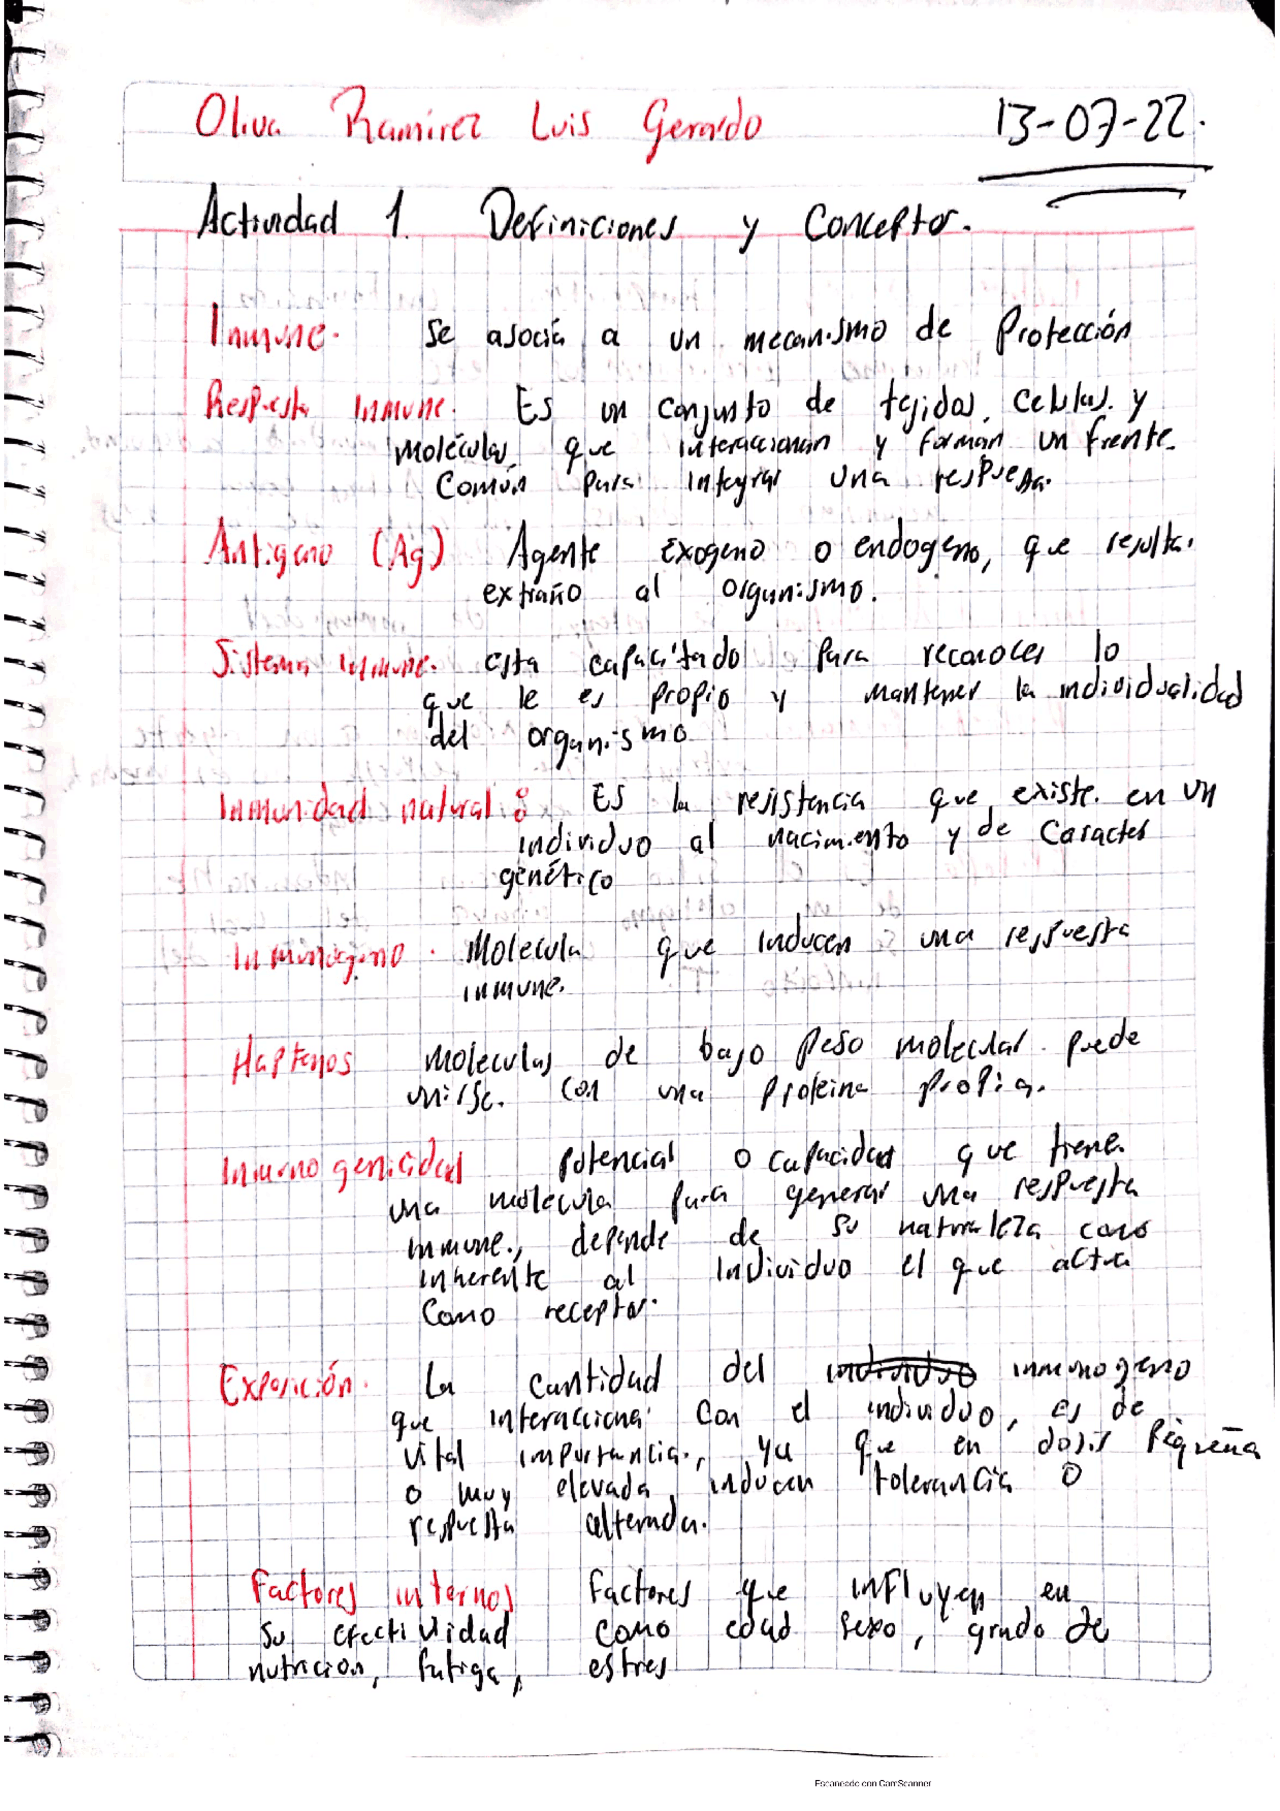 Oliva Ramirez Luis Gerardo 13-07-22.
Actividad 1. Definiciones y Conceptos.
Inmune. Se asocia a un mecanismo de Protección
Respuesta inmune. Es un conjusto de tejidos, Celulas y
moléculas, que interaccionan y forman un frente
Común para integrar una respuesta.
Antigeno (Ag) Agente Exogeno o endogeno, que resulta
extraño al organismo.
Sistema inmune. esta capacitado para reconocer lo
que le es propio y mantener la individualidad
del organismo
Inmunidad natural: Es la resistencia que existe en un
individuo al nacimiento y de Caracter
genético
Inmunógeno. Molecula que inducen una respuesta
inmune.
Haptenos moleculas de bajo peso molecular puede
unirse con una proteina propia.
Inmunogenicidad potencial o capacidad que tiene
una molecula para generar una respuesta
inmune, depende de su naturaleza como
inherente al individuo el que actua
Como receptor.
Exposición. La cantidad del individuo inmunogeno
que interacciona con el individuo, es de
vital importancia, ya que en dosis pequeña
o muy elevada, inducen tolerancia o
respuesta alterada.
Factores internos Factores que influyen en
su efectividad como edad sexo, grado de
nutricion, fatiga, estres
Escaneado con CamScanner